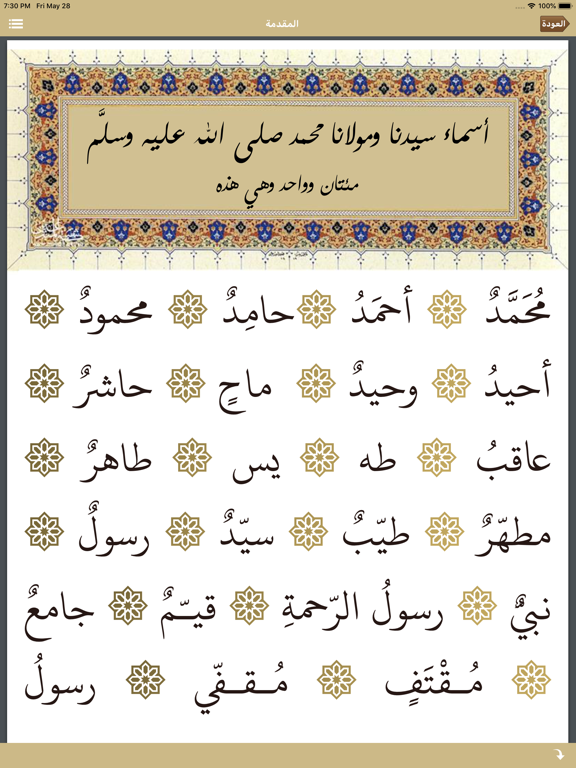 7:30 PM Fri May 28 100%
المقدمة
العودة
أسماء سيدنا ومولانا محمد صلى الله عليه وسلَّم
مئتان وواحد وهي هذه
مُحَمَّدٌ أحمَدُ حامِدٌ محمودٌ
أحيدُ وحيدٌ ماحٍ حاشرٌ
عاقبُ طه يس طاهرٌ
مطهّرٌ طيّبٌ سيّدٌ رسولٌ
نبيٌّ رسولُ الرّحمةِ قيـّمٌ جامعٌ
مُـقْتَفٍ مُـقـفّي رسولُ